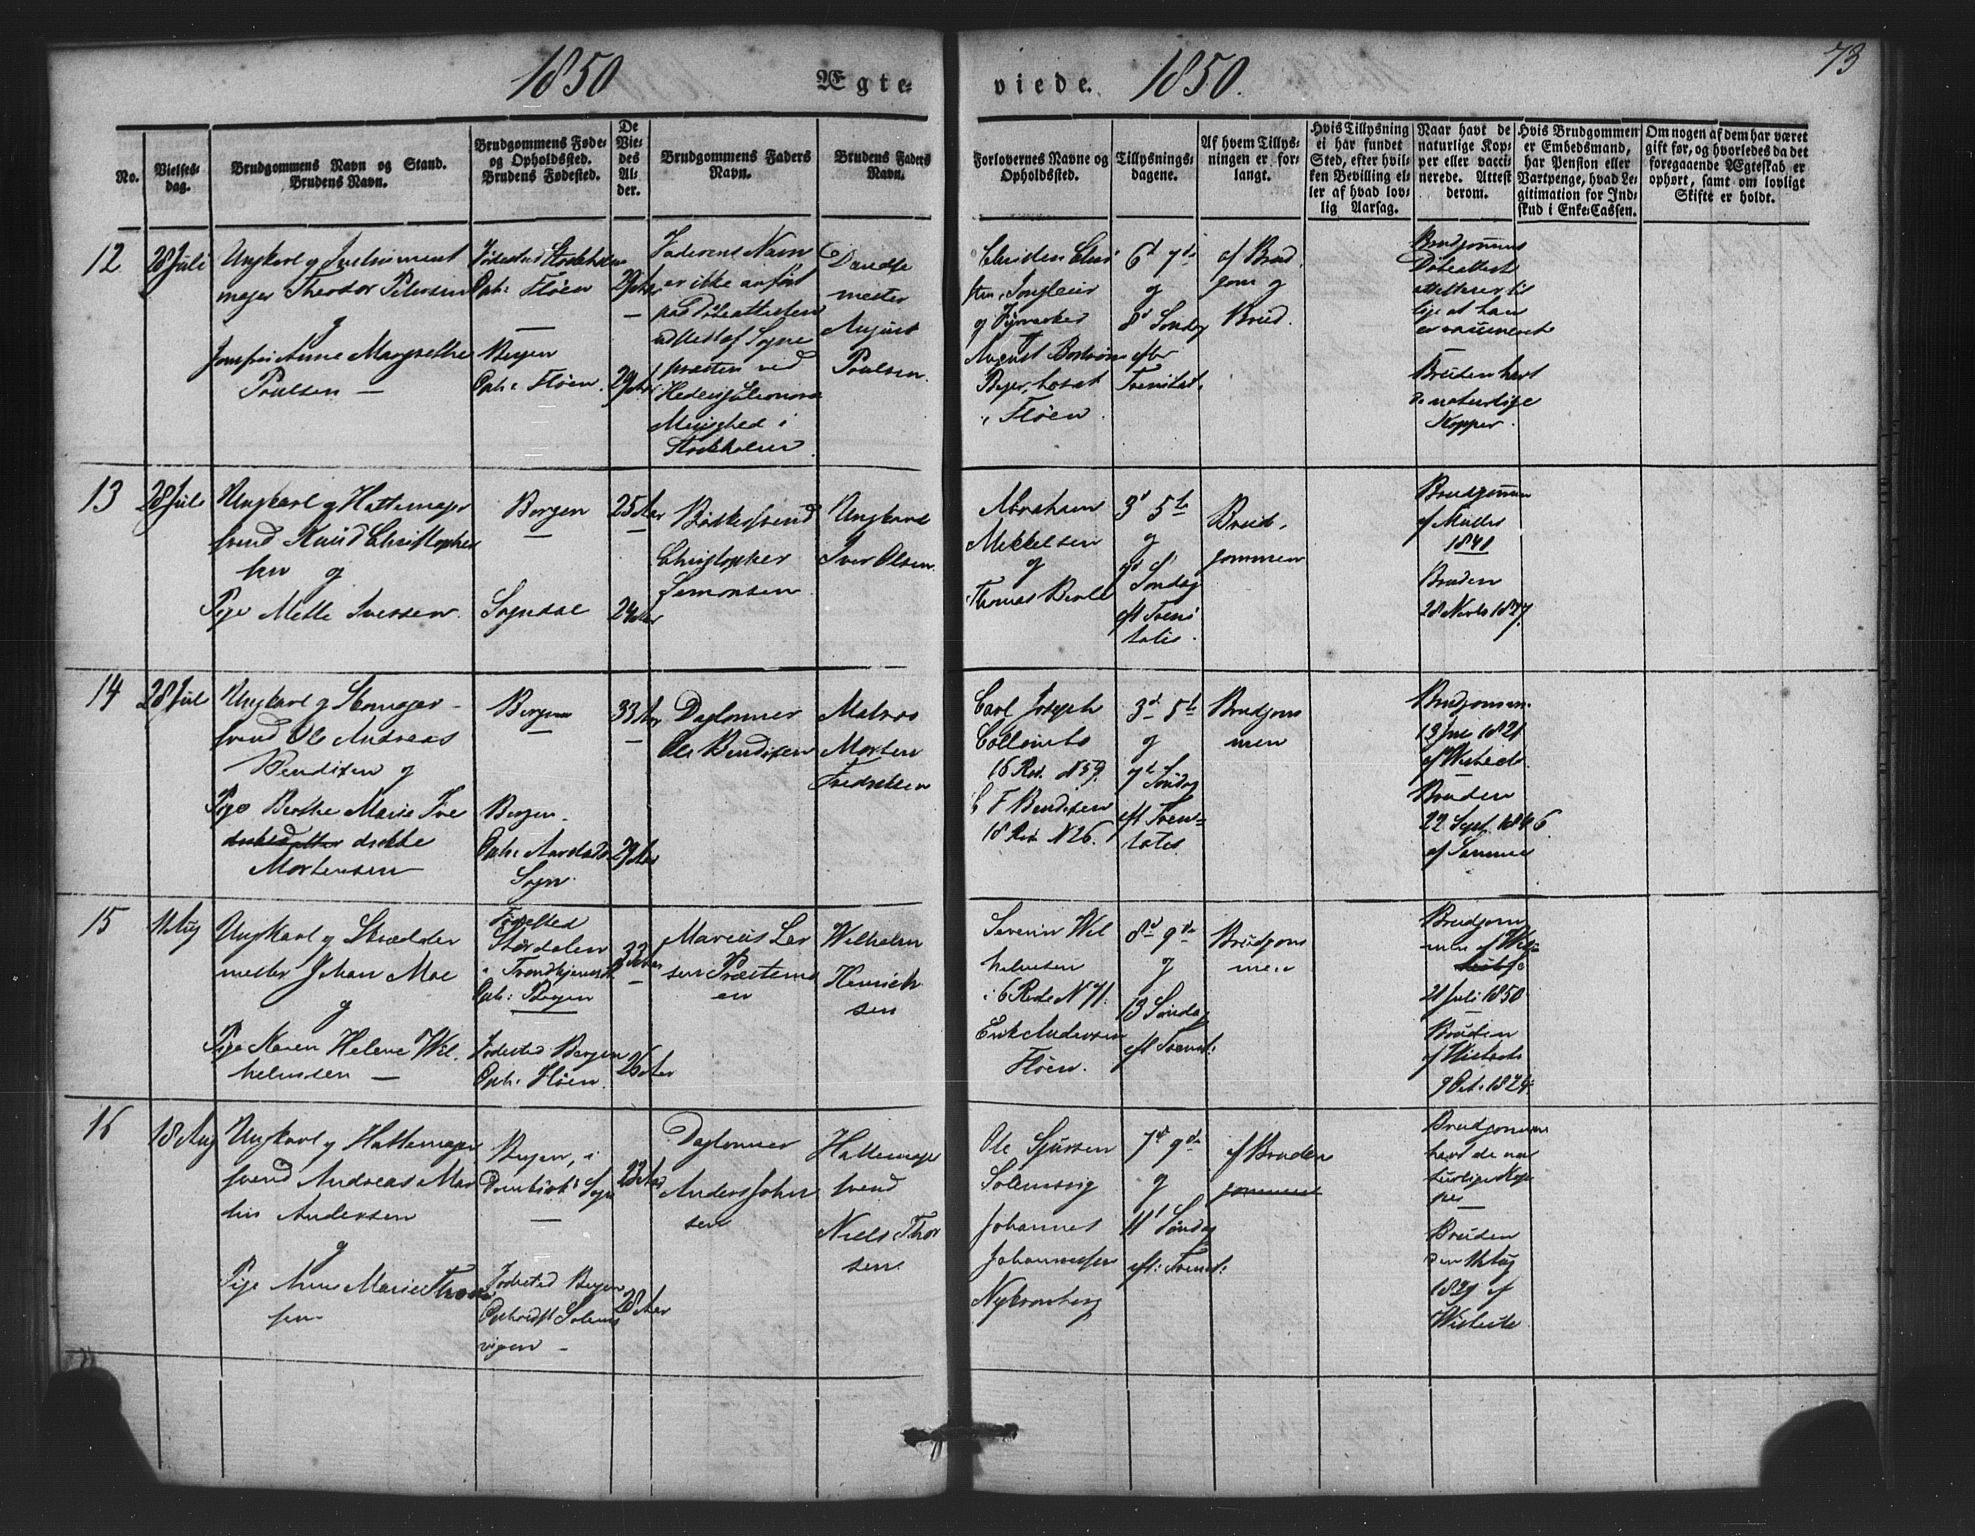 1850
Ægte
viede.
1850.
73
No.
Vielses-
dag.
Brudgommens Navn og Stand.
Brudens Navn.
Brudgommens Føde-
og Opholdssted.
Brudens Fødested.
De
Vie-
des
Al-
der.
Brudgommens Faders
Navn.
Brudens Faders
Navn.
Forlovernes Navne og
Opholdssted.
Tillysnings-
dagene.
Af hvem Tillys-
ningen er for-
langt.
Hvis Tillysning
ei har fundet
Sted, efter hvil-
ken Bevilling el-
ler af hvad lov-
lig Aarsag.
Naar havt de
naturlige Kop-
per eller vacci-
nerede. Attest
derom.
Hvis Brudgommen
er Embedsmand,
har Pension eller
Vartpenge, hvad Le-
gitimation for Ind-
skud i Enke-Cassen.
Om nogen af dem har været
gift før, og hvorledes da det
foregaaende Ægteskab er
ophørt, samt om lovligt
Skifte er holdt.
12
28 Juli
Ungkarl og Instrument
mager Theodor Petersen
og
Jomfru Anne Margrethe
Poulsen —
Fødested Stockholm
Oph: Fløen
Bergen
Oph: Fløen.
29 Aar
29 Aar
Faderens Navn
er ikke anført
paa Døbeattesten
udstedt af Sogne
præsten ved
Hedevig Eleonora
Menighed i
Stockholm
Dandse
mester
August
Poulsen.
og Fyrverker
August
i Fløen.
6d 7de
og
8d Søndag
efter
Trenitat.
af Brud
gom og
Brud.
Brudgommens
Døbeattest
at han
er vaccineret
Bruden havt
de naturlige
Kopper.
13
28 Juli
Ungkarl og Hattemager
svend Knud Christopher
sen og
Pige Mette Iversen.
Bergen
Sogndal
25 Aar
24 Aar
Bødkersvend
Christopher
Simonsen
Ungkarl
Iver Olsen.
Abraham
Mikkelsen
og
Thomas
3d 5te
og
7d Søndag
eft Treni
tatis.
Brud-
gommen
Brudgommen
af Müller
Bruden
14
28 Juli
Ungkarl og
svend Ole Andreas
Bendixen og
Pige Berthe Marie Fre
drikke
Mortensen
Bergen
Bergen.
Oph: Aarstad
Sogn
33 Aar
29 Aar
Daglønner
Ole Bendixen
Matros
Morten
Fredriksen
Carl Joseph
16 Rod. N 59.
F Bendixen
18 Rod N 26.
3d 5te
og
7d Søndag
eft Treni-
tates
Brudgom
men
Brudgommen
af Wisbech
Bruden
22 Sept. 1846.
15
11 Aug
Ungkarl og Skrædder
mester Johan Moe
og
Pige Karen Helene Wil-
helmsen —
Fødested
Størdalen
i Trondhjems
Oph: Bergen
Fødested Bergen
Oph: Fløen.
33 Aar
26 Aar
Marcus Lar
sen Præstemo
en
Wilhelm
Henrich
sen
Severin Wil
helmsen
i 6 Rode N 71.
Erik Andersen
Fløen.
8d 9de
og
13 Søndag
eft Trenit:
Brudgom
men
Brudgom
men af
21 Juli 1850
Bruden
af Wisbech
9 Oct. 1824.
16
18 Aug
Ungkarl og Hattemager
svend Andreas Mar
tin Andersen
og
Pige Anne Marie Thor
sen
Bergen, i
Domkirk: Sogn
Fødested Bergen
Opholdst Solems
vigen —
23 Aar
28 Aar
Daglønner
Anders John
sen
Hattemager
svend
Niels Thor
sen.
Ole Sjursen
Solemsvig
Johannes
Johannessen
Nykronborg
7d 9de
og
11d Søndag
eft: Trenit:
af Bruden
gommen
Brudgommen
havt de na
turlige Kop
per
Bruden
den 11 Aug
1829 af
Wisbech